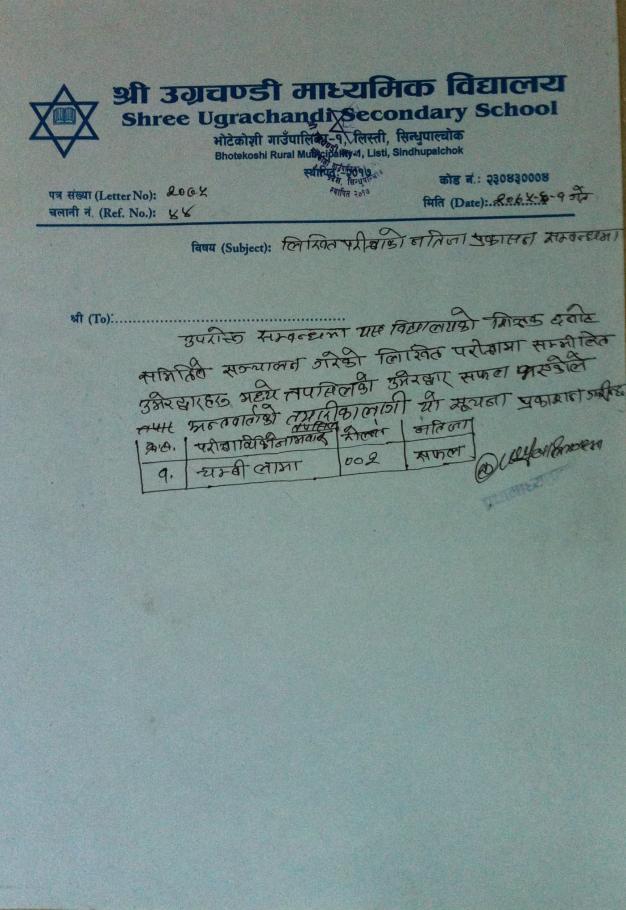 श्री उग्रचण्डी माध्यमिक विद्यालय
Shree Ugrachandi Secondary School
भोटेकोशी गाउँपालिका-१, लिस्ती, सिन्धुपाल्चोक
Bhotekoshi Rural Municipality-1, Listi, Sindhupalchok
स्थापित-२०१७
कोड नं.: २३०४३०००४
पत्र संख्या (Letter No): २०७५
मिति (Date):
चलानी नं. (Ref. No.): ४४
विषय (Subject): लिखित परीक्षाको नतिजा प्रकासन सम्बन्धमा।
श्री (To):
उपरोक्त सम्बन्धमा यस विद्यालयको शिक्षक छनौट
समितिले सञ्चालन गरेको लिखित परीक्षामा सम्मीलित
उमेरद्वारहरु मध्ये तपसिलको उमेरद्वार सफल भएकोले
अन्तरवार्ताको तयारीकालागी यो सूचना प्रकाशन गरीन्छ
तपसिल
क्र.स. परीक्षार्थीको नामथर रोल नं नतिजा
१. लामा ००२ सफल